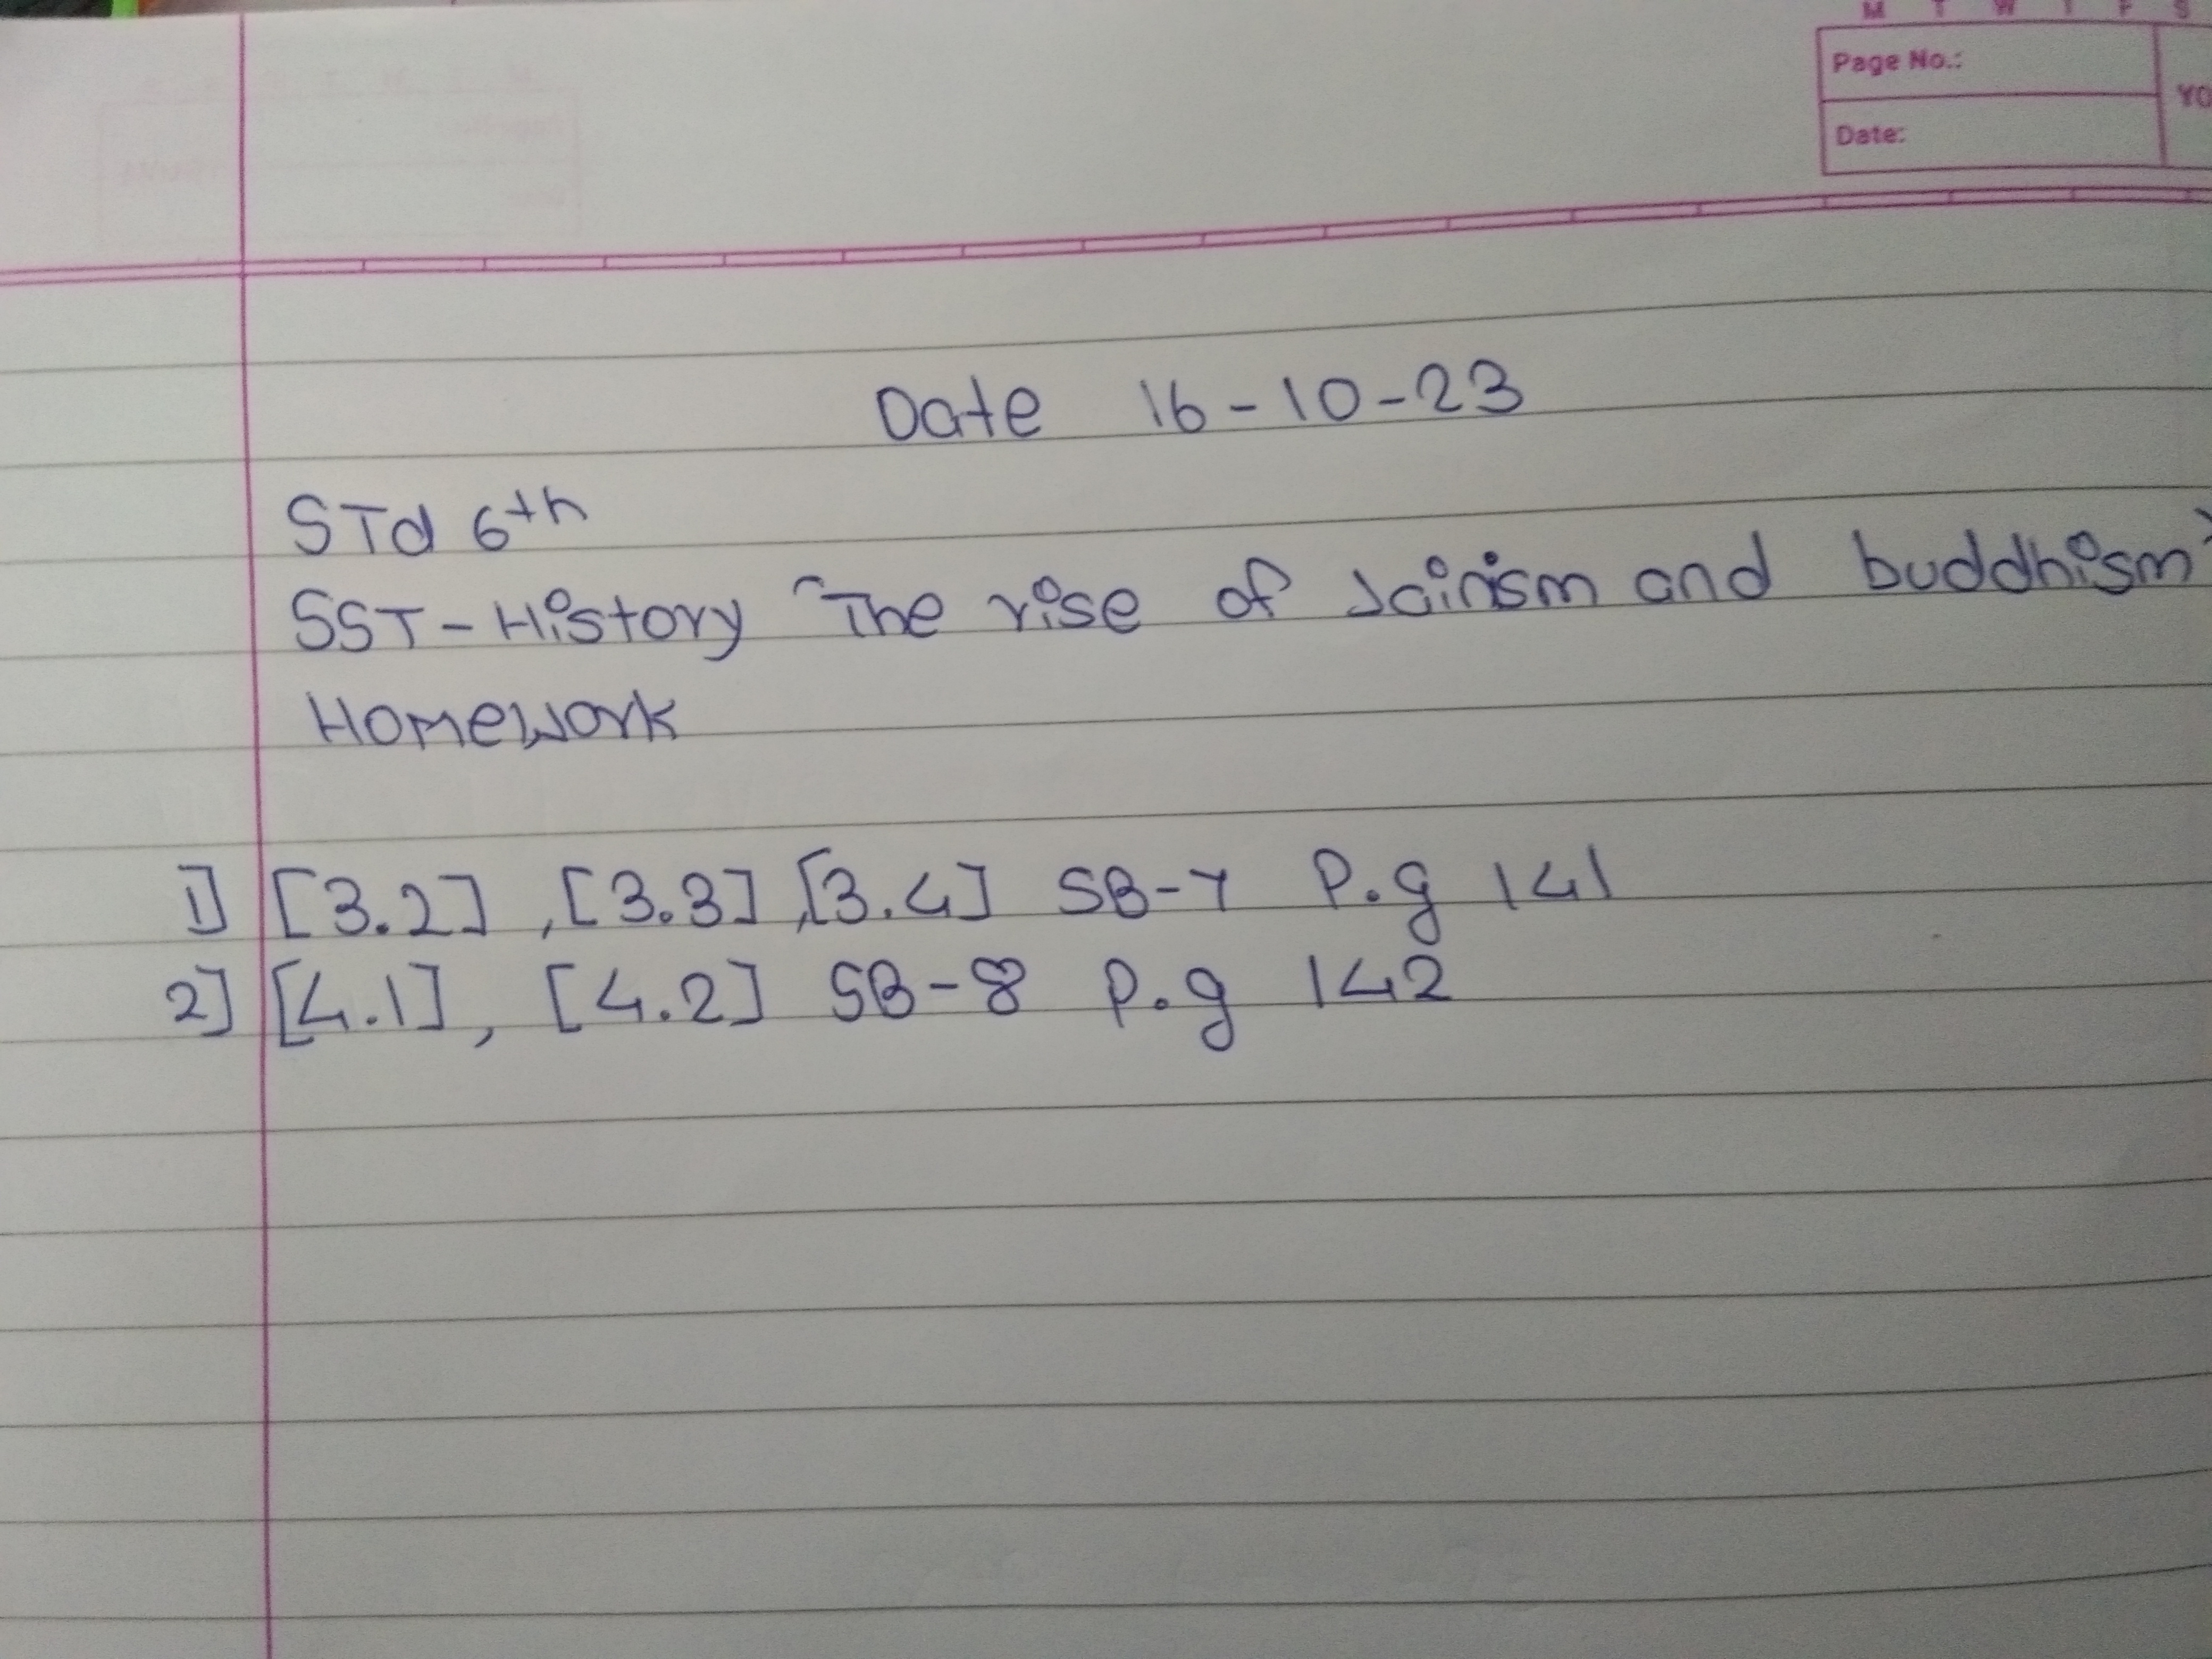 M T W T F S
Page No.:
YO
Date:
Date 16-10-23
STd 6th
SST-History "The rise of Jainism and buddhism"
Homework
1] [3.2], [3.3], [3.4] SB-7 P.g 141
2] [4.1], [4.2] SB-8 P.g 142